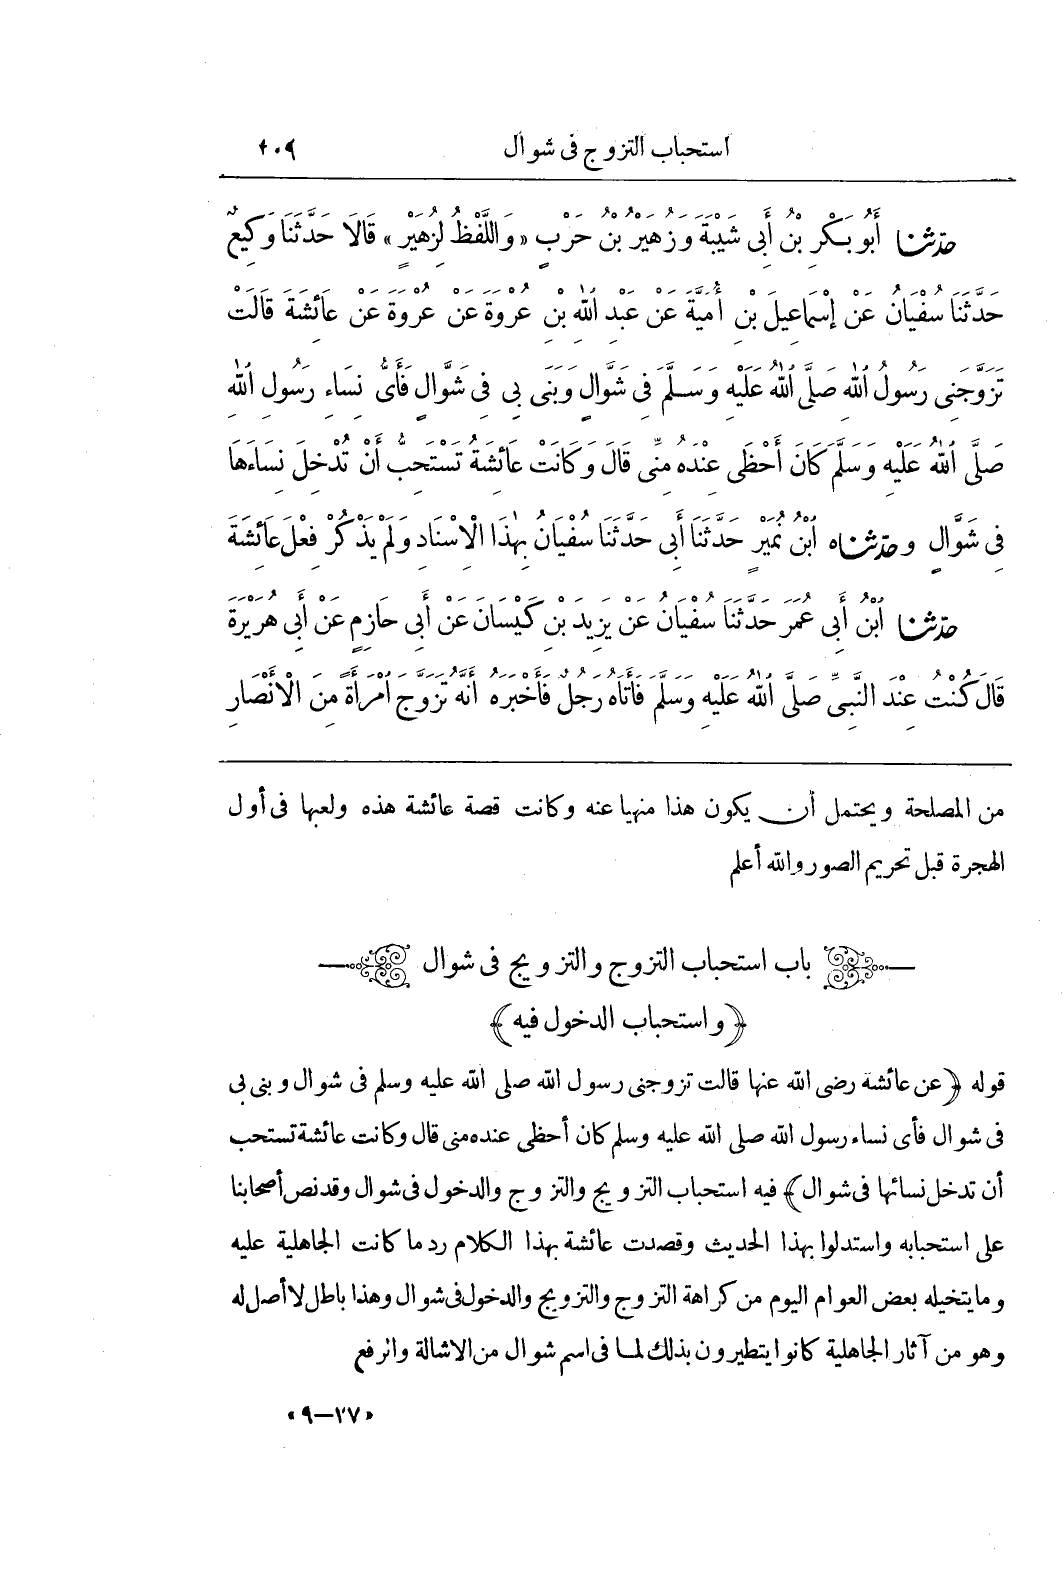 استحباب التزوج فى شوال ٢٠٩
حدثنا أَبُو بَكْرِ بْنُ أَبِى شَيْبَةَ وَزُهَيْرُ بْنُ حَرْبٍ «وَاللَّفْظُ لِزُهَيْرٍ» قَالَا حَدَّثَنَا وَكِيعٌ
حَدَّثَنَا سُفْيَانُ عَنْ إِسْمَاعِيلَ بْنِ أُمَيَّةَ عَنْ عَبْدِ اللهِ بْنِ عُرْوَةَ عَنْ عُرْوَةَ عَنْ عَائِشَةَ قَالَتْ
تَزَوَّجَنِى رَسُولُ اللهِ صَلَّى اللهُ عَلَيْهِ وَسَلَّمَ فِى شَوَّالٍ وَبَنَى بِى فِى شَوَّالٍ فَأَىُّ نِسَاءِ رَسُولِ اللهِ
صَلَّى اللهُ عَلَيْهِ وَسَلَّمَ كَانَ أَحْظَى عِنْدَهُ مِنِّى قَالَ وَكَانَتْ عَائِشَةُ تَسْتَحِبُّ أَنْ تُدْخِلَ نِسَاءَهَا
فِى شَوَّالٍ وحدثناه ابْنُ نُمَيْرٍ حَدَّثَنَا أَبِى حَدَّثَنَا سُفْيَانُ بِهٰذَا الْاِسْنَادِ وَلَمْ يَذْكُرْ فِعْلَ عَائِشَةَ
حدثنا ابْنُ أَبِى عُمَرَ حَدَّثَنَا سُفْيَانُ عَنْ يَزِيدَ بْنِ كَيْسَانَ عَنْ أَبِى حَازِمٍ عَنْ أَبِى هُرَيْرَةَ
قَالَ كُنْتُ عِنْدَ النَّبِىِّ صَلَّى اللهُ عَلَيْهِ وَسَلَّمَ فَأَتَاهُ رَجُلٌ فَأَخْبَرَهُ أَنَّهُ تَزَوَّجَ امْرَأَةً مِنَ الْأَنْصَارِ
من المصلحة ويحتمل أن يكون هذا منهيا عنه وكانت قصة عائشة هذه ولعبها فى أول
الهجرة قبل تحريم الصور والله أعلم
باب استحباب التزوج والتزويج فى شوال
﴿واستحباب الدخول فيه﴾
قوله ﴿عن عائشة رضى الله عنها قالت تزوجنى رسول الله صلى الله عليه وسلم فى شوال وبنى بى
فى شوال فأى نساء رسول الله صلى الله عليه وسلم كان أحظى عنده منى قال وكانت عائشة تستحب
أن تدخل نسائها فى شوال﴾ فيه استحباب التزويج والتزوج والدخول فى شوال وقد نص أصحابنا
على استحبابه واستدلوا بهذا الحديث وقصدت عائشة بهذا الكلام رد ما كانت الجاهلية عليه
وما يتخيله بعض العوام اليوم من كراهة التزوج والتزويج والدخول فى شوال وهذا باطل لا أصل له
وهو من آثار الجاهلية كانوا يتطيرون بذلك لما فى اسم شوال من الاشالة والرفع
«٢٧—٩»